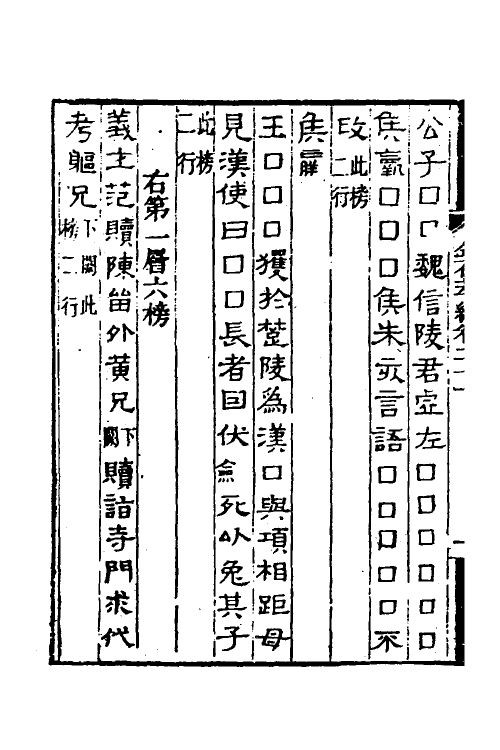 公子□□魏信陵君虛左□□□□□□
矦嬴□□□矦朱亥言語□□□□□不
攻此榜二行
矦嬴
王□□□獲於楚陵爲漢□與項相距母
見漢使曰□□長者囙伏劍死以免其子
此榜二行
右第一層六榜
義主范贖陳畱外黃兄下闕贖詣寺門求代
考軀兄下闕此榜二行